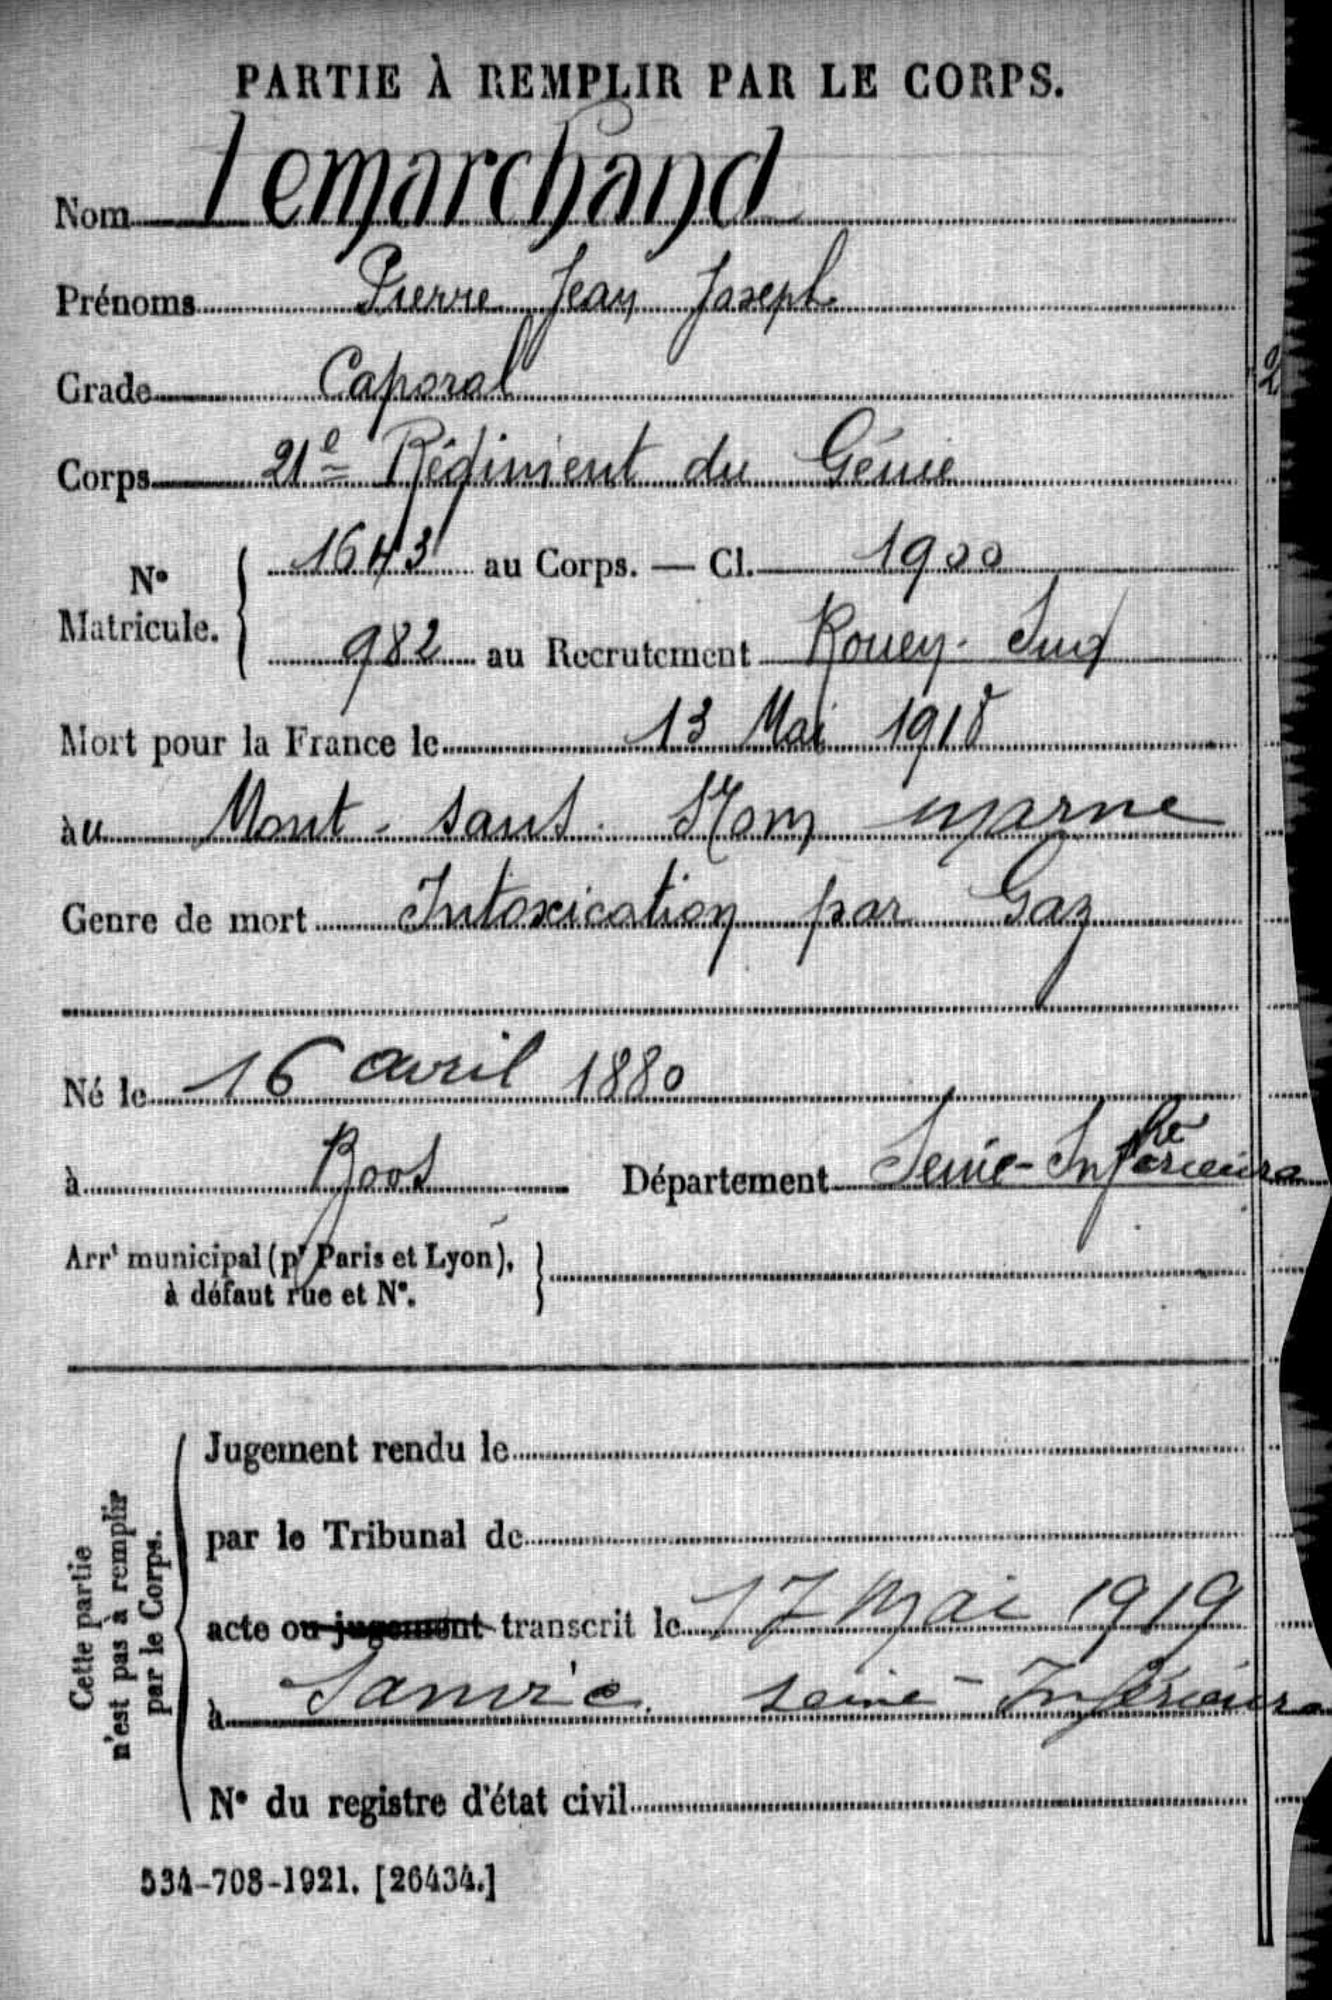 PARTIE À REMPLIR PAR LE CORPS.
Nom Lemarchand
Prénoms Pierre Jean Joseph
Grade Caporal
Corps 21e Régiment du Génie
No Matricule. { 1643 au Corps. — Cl. 1900
982 au Recrutement Rouen-Sud
Mort pour la France le 13 Mai 1918
au Mont-sans-Nom marne
Genre de mort Intoxication par Gaz
Né le 16 avril 1880
à Boos Département Seine-Inférieure
Arrt municipal (pr Paris et Lyon),
à défaut rue et No.
Cette partie
n'est pas à remplir
par le Corps.
Jugement rendu le
par le Tribunal de
acte ou jugement transcrit le 17 mai 1919
à Sanvic. Seine-Inférieure
No du registre d'état civil
534-708-1921. [26434.]